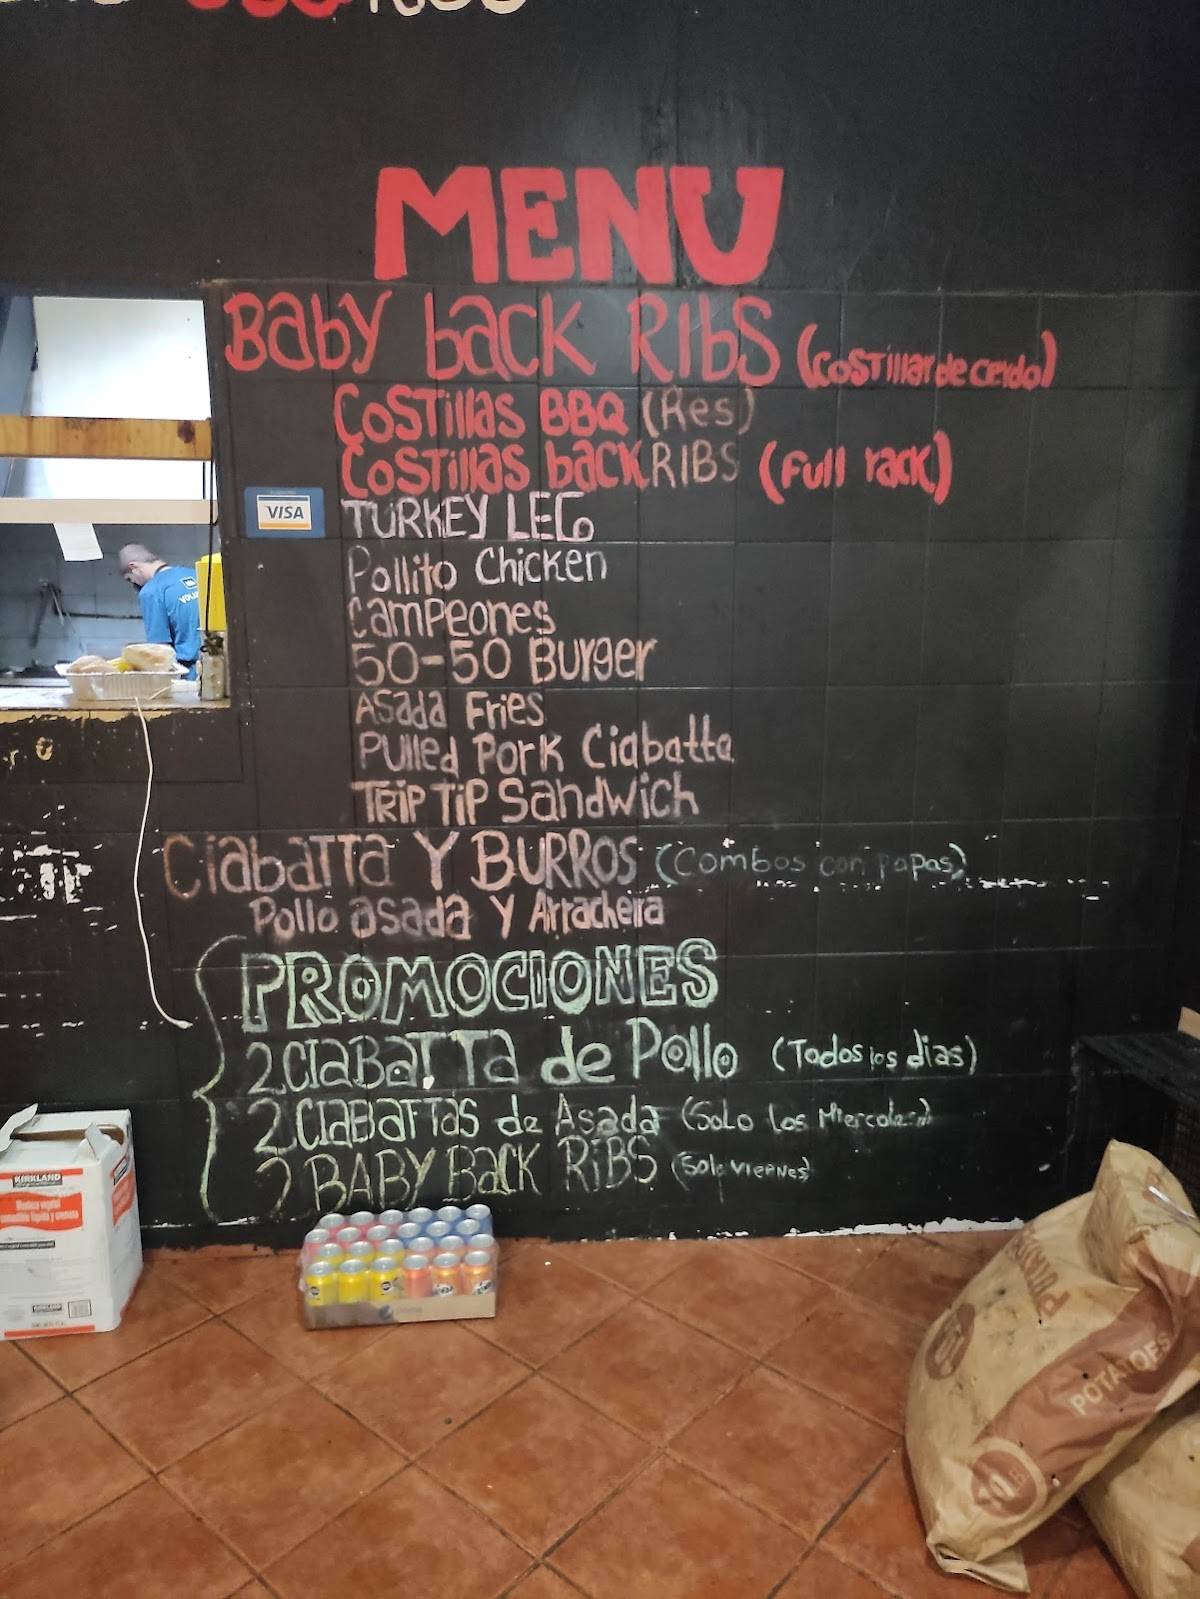 MENU
Baby back Ribs (Costillar de cerdo)
Costillas BBQ (Res)
Costillas back RIBS (Full rack)
VISA
TURKEY LEG
Pollito Chicken
Campeones
50-50 Burger
Asada Fries
Pulled Pork Ciabatta
TRIP TIP Sandwich
Ciabatta Y BURROS (Combos con papas)
Pollo asada Y Arrachera
PROMOCIONES
2 CIABATTA de Pollo (Todos los dias)
2 CIABATTAS de Asada (Solo Los Miercoles)
2 BABY BACK RIBS (Solo viernes)
KIRKLAND
POTATOES